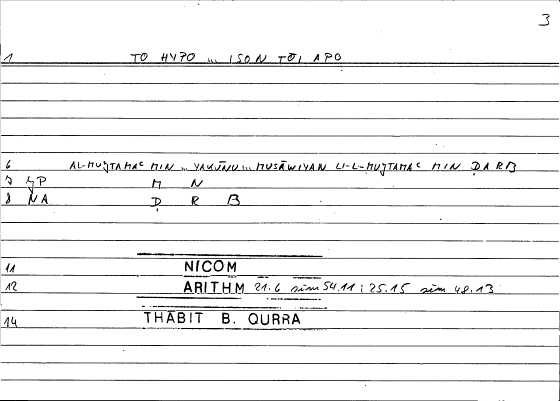 3
1 TO HYPO ... ISON TŌI APO
6 AL-MUJTAMAʿ MIN ... YAKŪNU ... MUSĀWIYAN LI-L-MUJTAMAʿ MIN ḌARB
7 JP M N
8 NA Ḍ R B
11 NICOM
12 ARITHM 21.6 sim 54.11; 25.15 sim 48.13
14 THĀBIT B. QURRA